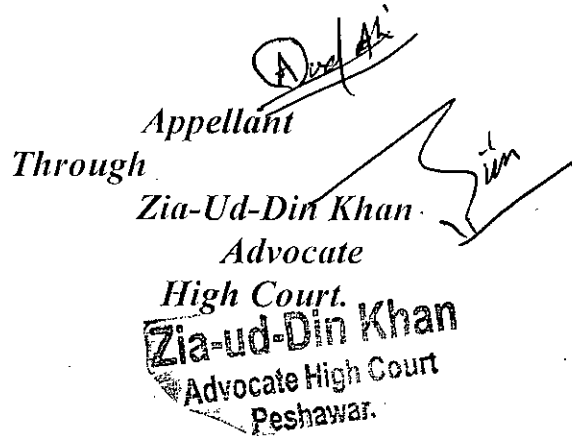 Appellant
Through
Zia-Ud-Din Khan
Advocate
High Court.
Zia-ud-Din Khan
Advocate High Court
Peshawar.